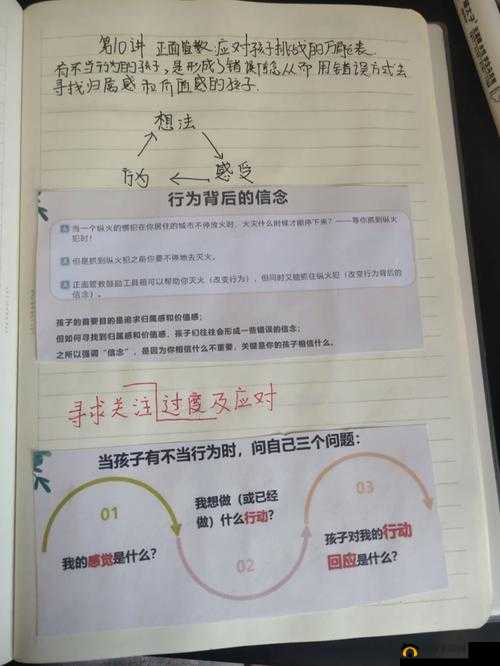 第10讲 正面管教.应对孩子挑战的万能表
有不当行为的孩子,是形成了错误信念从而用错误方式去
寻找归属感和价值感的孩子.
想法
行为
感受
行为背后的信念
当一个纵火的惯犯在你居住的城市不停放火时,大灾什么时候才能停下来?——等你抓到纵火
犯时!
但是抓到纵火犯之前你要不停地去灭火。
正面管教鼓励工具箱可以帮助你灭火(改变行为),但同时又能抓住纵火犯(改变行为背后的
信念)。
孩子的首要目的是追求归属感和价值感;
但如何寻找到归属感和价值感、孩子们往往会形成一些错误的信念;
之所以强调“信念”,是因为你相信什么不重要,关键是你的孩子相信什么。
寻求关注 过度及应对
当孩子有不当行为时,问自己三个问题:
01
我的感觉是什么?
我想做(或已经
做)什么行动?
02
03
孩子对我的行动
回应是什么?